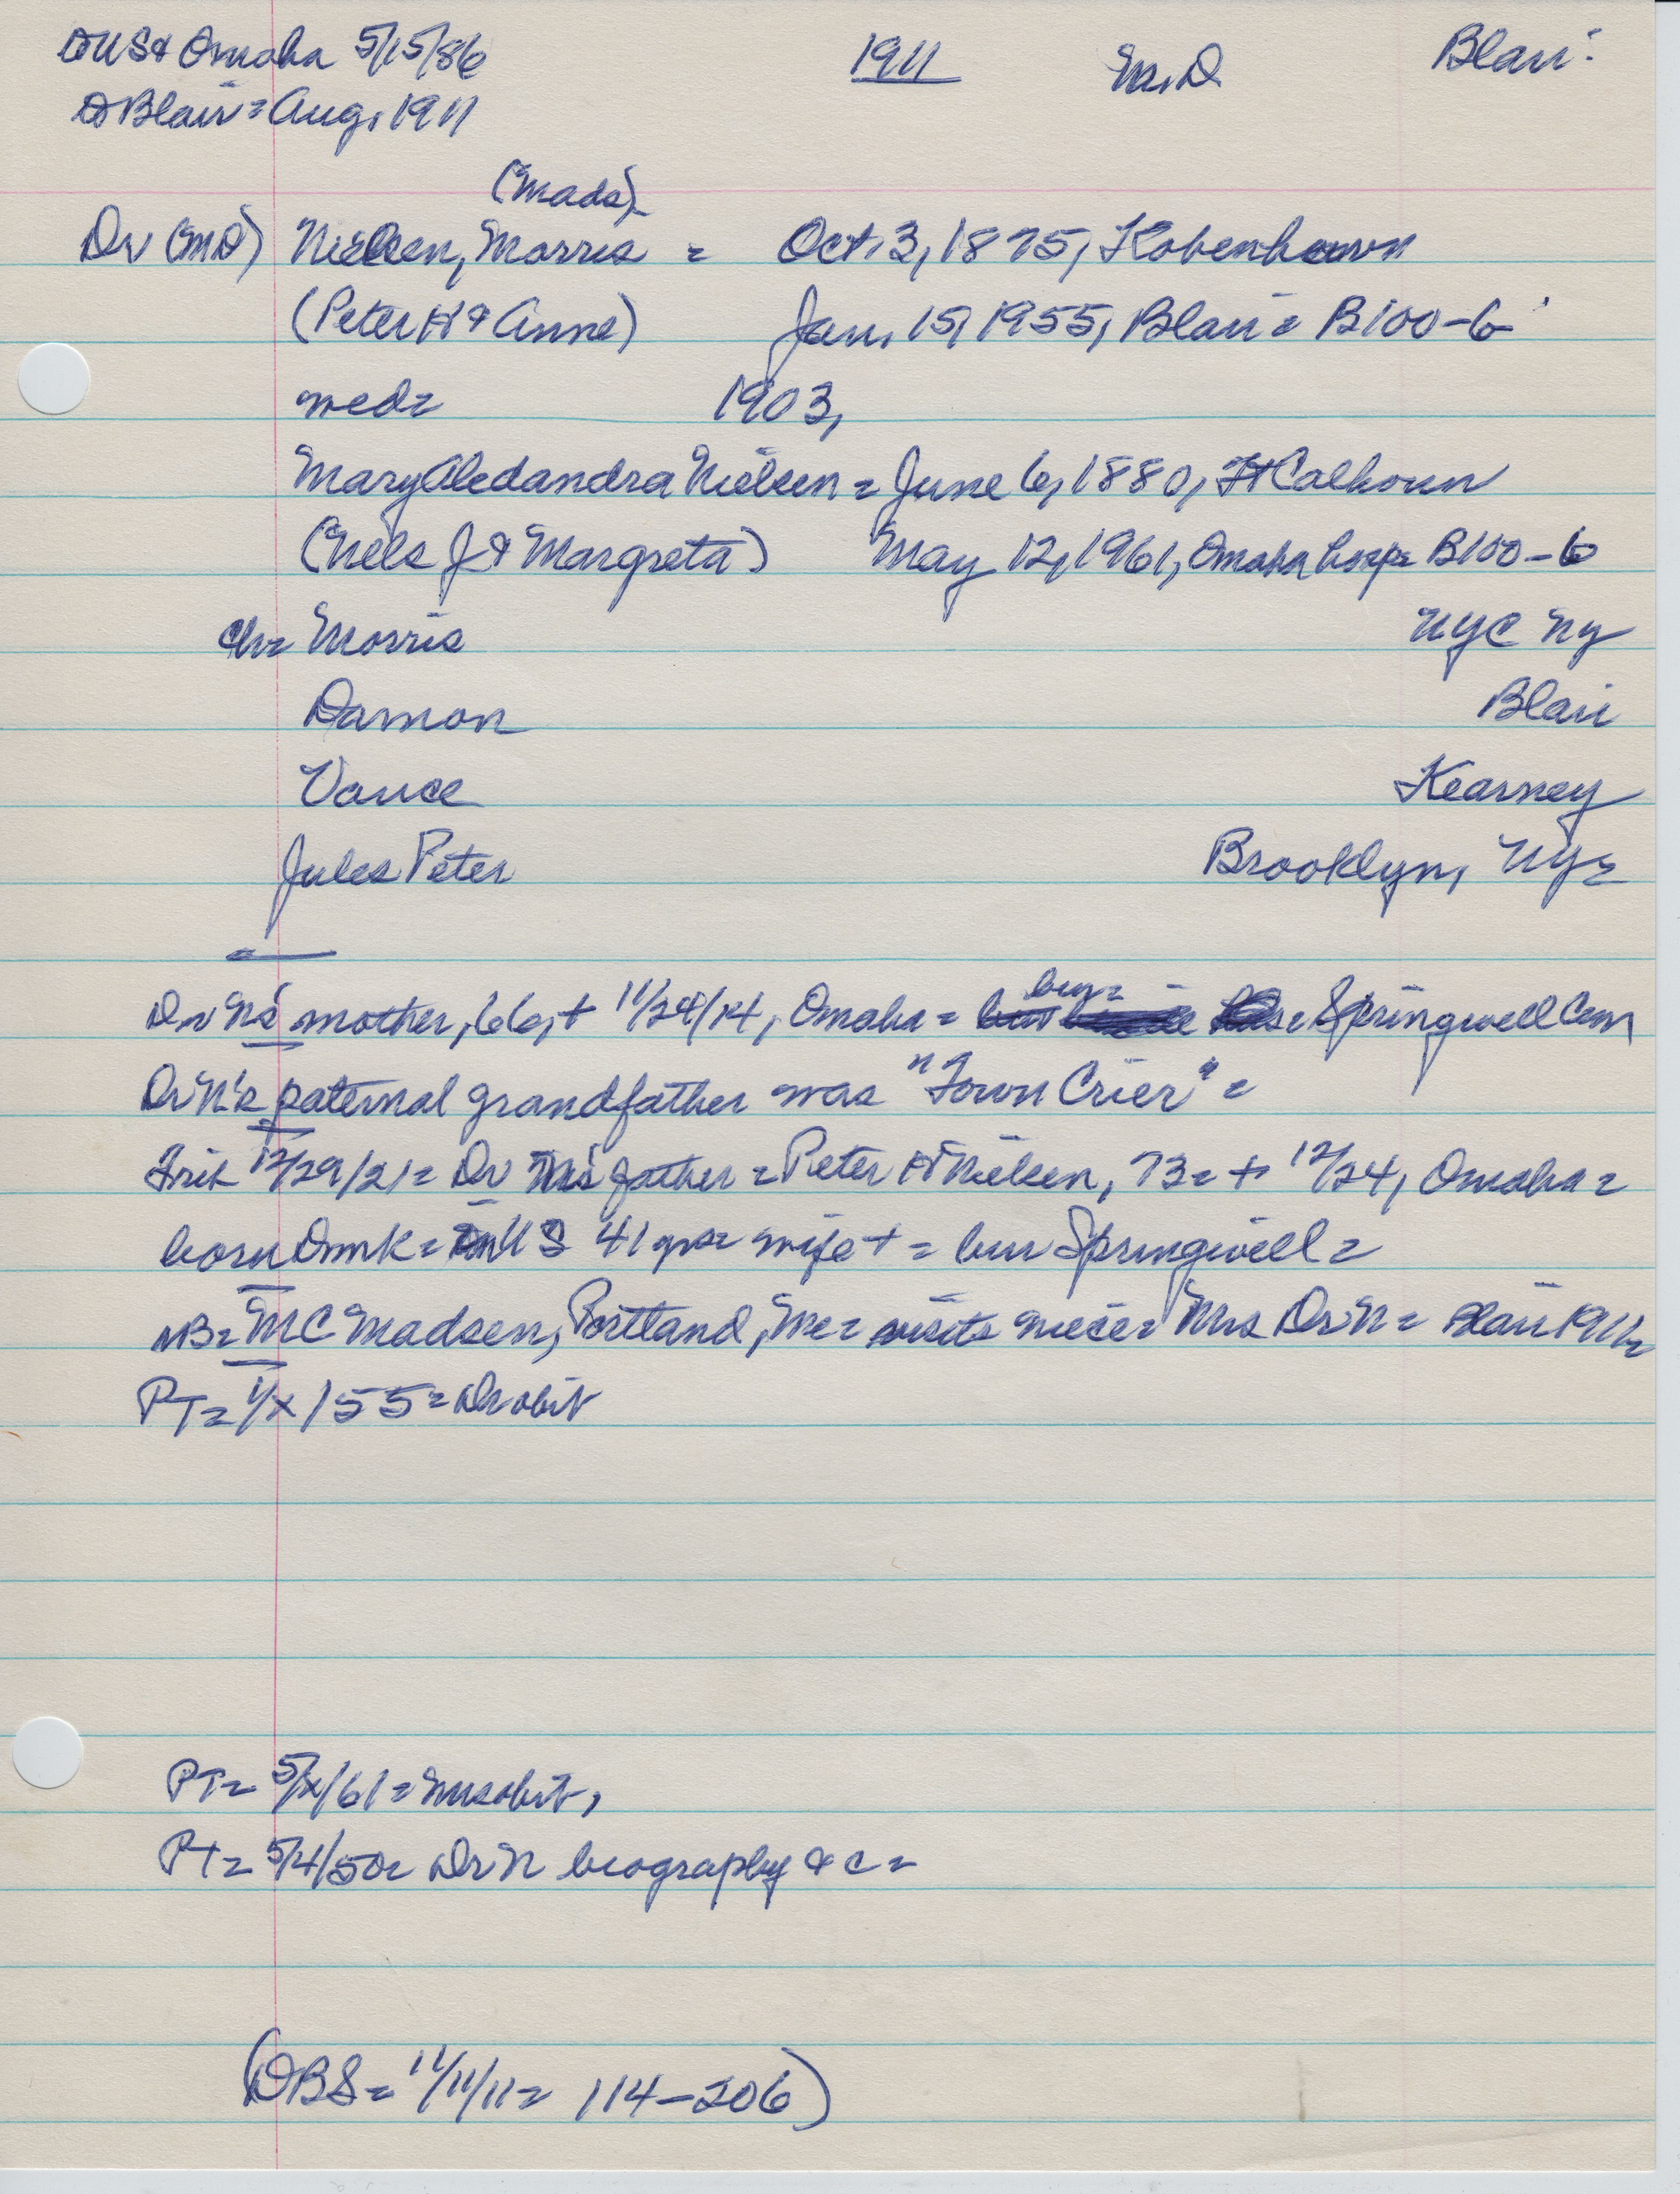 to US & Omaha 5/15/86
1911 M.D. Blair
to Blair = Aug, 1911
(Mads)
Dr (MD) Nielsen, Morris = Oct. 3, 1875, Kobenhavn
(Peter H & Anne) Jan. 15, 1955, Blair = B100-6
med= 1903,
Mary Aledandra Nielsen = June 6, 1880, Ft Calhoun
(Nels J & Margreta) May 12, 1961, Omaha hosp= B100-6
ch= Morris NYC NY
Damon Blair
Vance Kearney
Jules Peter Brooklyn, NY=
bur=
Dr N's mother, 66, + 11/24/14, Omaha = Springwell Cem
Dr N's paternal grandfather was "Town Crier" =
12/29/21= Dr N's father = Peter H Nielsen, 73= + 12/24, Omaha =
born Dnmk = in US 41 yrs= wife + = bur Springwell =
NB= MC Madsen, Portland, Me= visits niece= Mrs Dr N = Blair 1911=
PT= 1/x/55= Dr obit
PT= 5/x/61= Mrs obit,
PT= 5/4/50= Dr N biography & c =
(DBS= 11/11/11= 114-206)